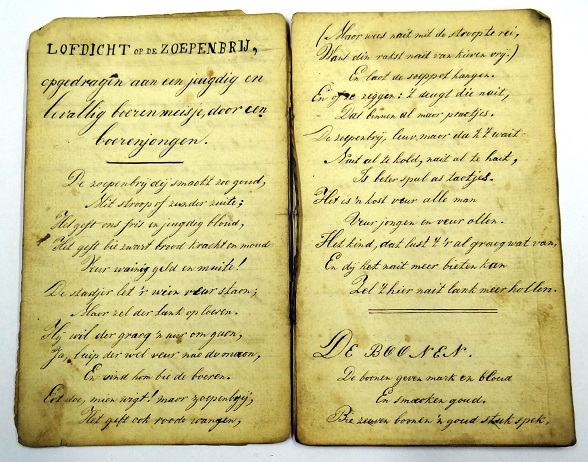 LOFDICHT OP DE ZOEPENBRIJ,
opgedragen aan een jeugdig en
bevallig boerenmeisje, door een
boerenjongen.
De zoepenbrij dij smaakt zoo goud,
Mit stroop of zunder zuite;
Het geft ons fris en jeugdig bloud,
Het geft bie zwart brood kracht en moud
Veur wainig geld en muite!
De stadjer let 'r wien veur staon;
Maor zel der lank op loeren.
Hij wil der graeg 'n uur om gaon,
Ja, luip der wel veur nao de maon,
En vind hom bie de boeren.
Eet doe, mien wigt! maor zoepenbrij,
Het geft ook roode wangen,
(Maor wees nait mit de stroop te rei,
Want din rakst nait van kieven vrij.)
En laot de soeppot hangen.
En of ze zeggen: 't deugt die nait,
Dat binnen al maor praotjes.
De zoepenbrij, leuv, maor da'z't wait
Nait al te kold, nait al te hait,
Is beter spul as taotjes.
Het is 'n kost veur alle man
Veur jongen en veur ollen.
Het kind, dat lust 't 'r al graeg wat van,
En dij het nait meer bieten kan
Zel 't hier nait lank meer hollen.
DE BOONEN.
De boonen geven mark en bloud
En smaoken goud.
Bie zeuven boonen 'n goud stuk spek,